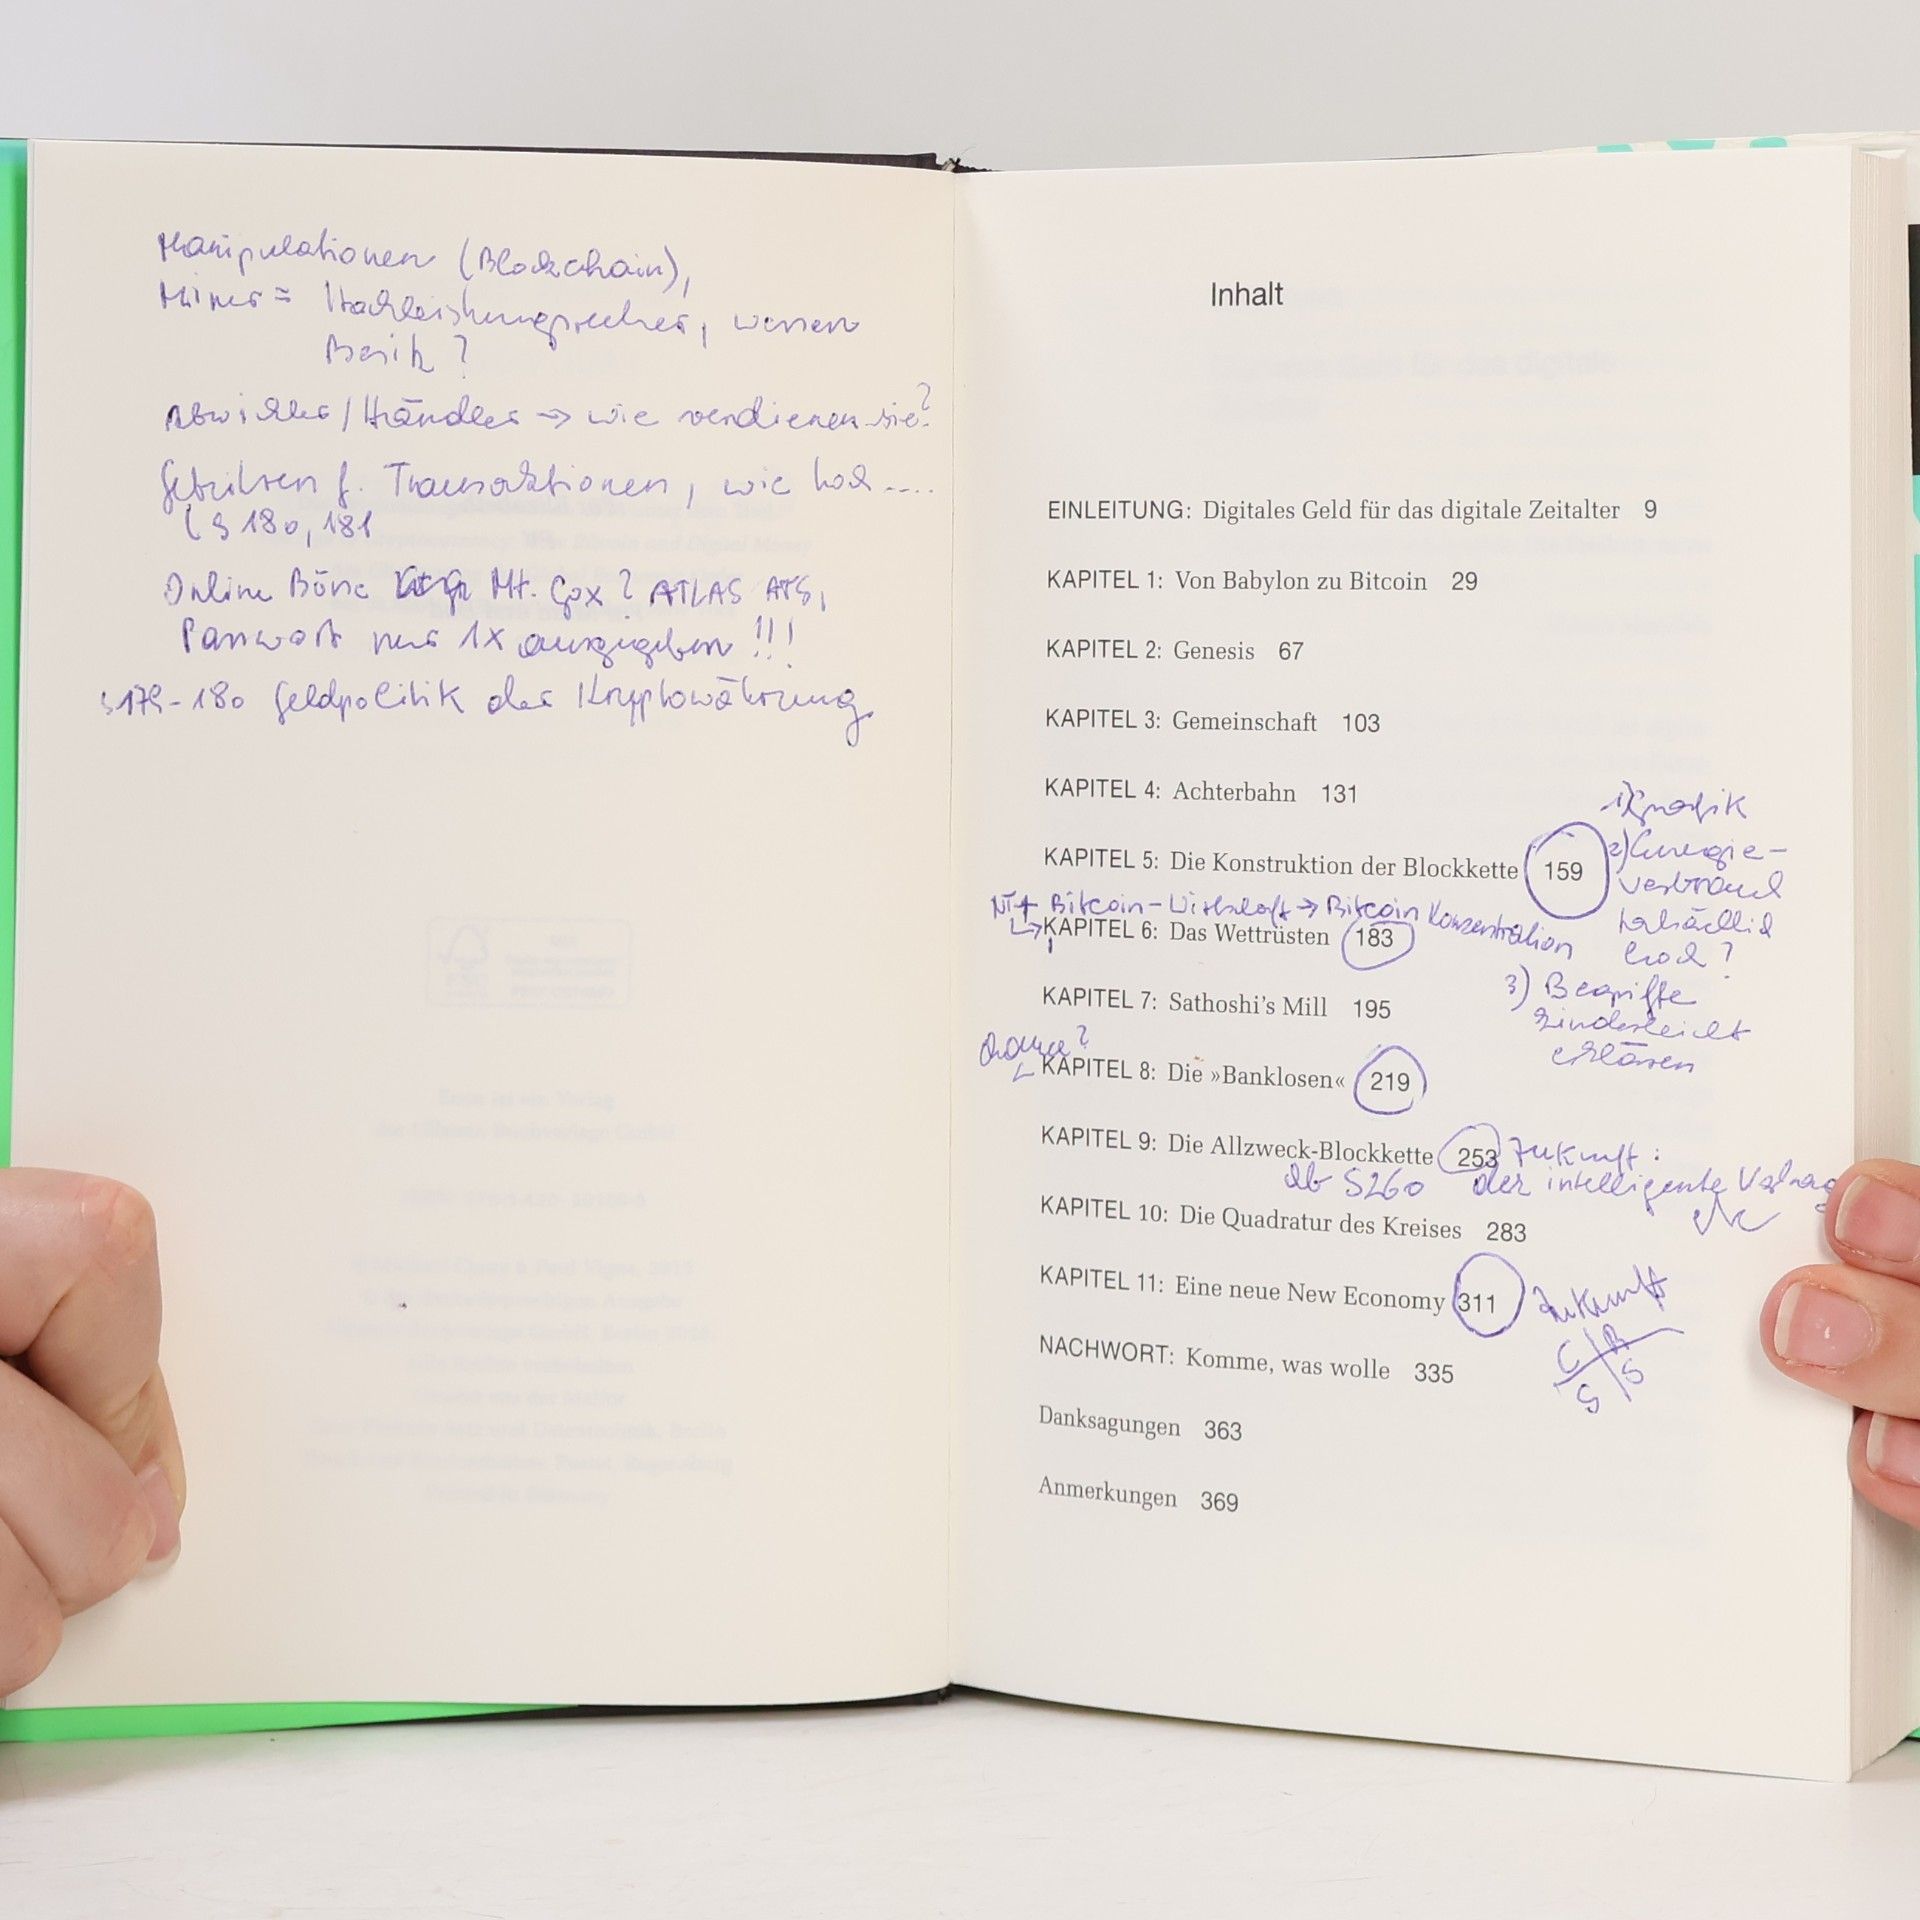 Manipulationen (Blockchain),
Miner = Hochleistungsrechner, wessen
Besitz?
Abwickler / Händler → wie verdienen sie?
Gebühren f. Transaktionen, wie hoch ....
(S 180, 181
Online Börse Mt. Gox? ATLAS ATS,
Passwort nur 1x ausgegeben!!!
S 179-180 Geldpolitik der Kryptowährung
Inhalt
EINLEITUNG: Digitales Geld für das digitale Zeitalter 9
KAPITEL 1: Von Babylon zu Bitcoin 29
KAPITEL 2: Genesis 67
KAPITEL 3: Gemeinschaft 103
KAPITEL 4: Achterbahn 131
KAPITEL 5: Die Konstruktion der Blockkette 159
1) Grafik
2) Energie-
verbrauch
tatsächlich
hoch?
3) Begriffe
kinderleicht
erklären
Bitcoin-Wirtschaft → Bitcoin Konzentration
KAPITEL 6: Das Wettrüsten 183
KAPITEL 7: Sathoshi's Mill 195
Chance?
KAPITEL 8: Die »Banklosen« 219
KAPITEL 9: Die Allzweck-Blockkette 253 Zukunft:
ab S260 der intelligente Vertrag
etc
KAPITEL 10: Die Quadratur des Kreises 283
KAPITEL 11: Eine neue New Economy 311 Zukunft
C B
S S
NACHWORT: Komme, was wolle 335
Danksagungen 363
Anmerkungen 369